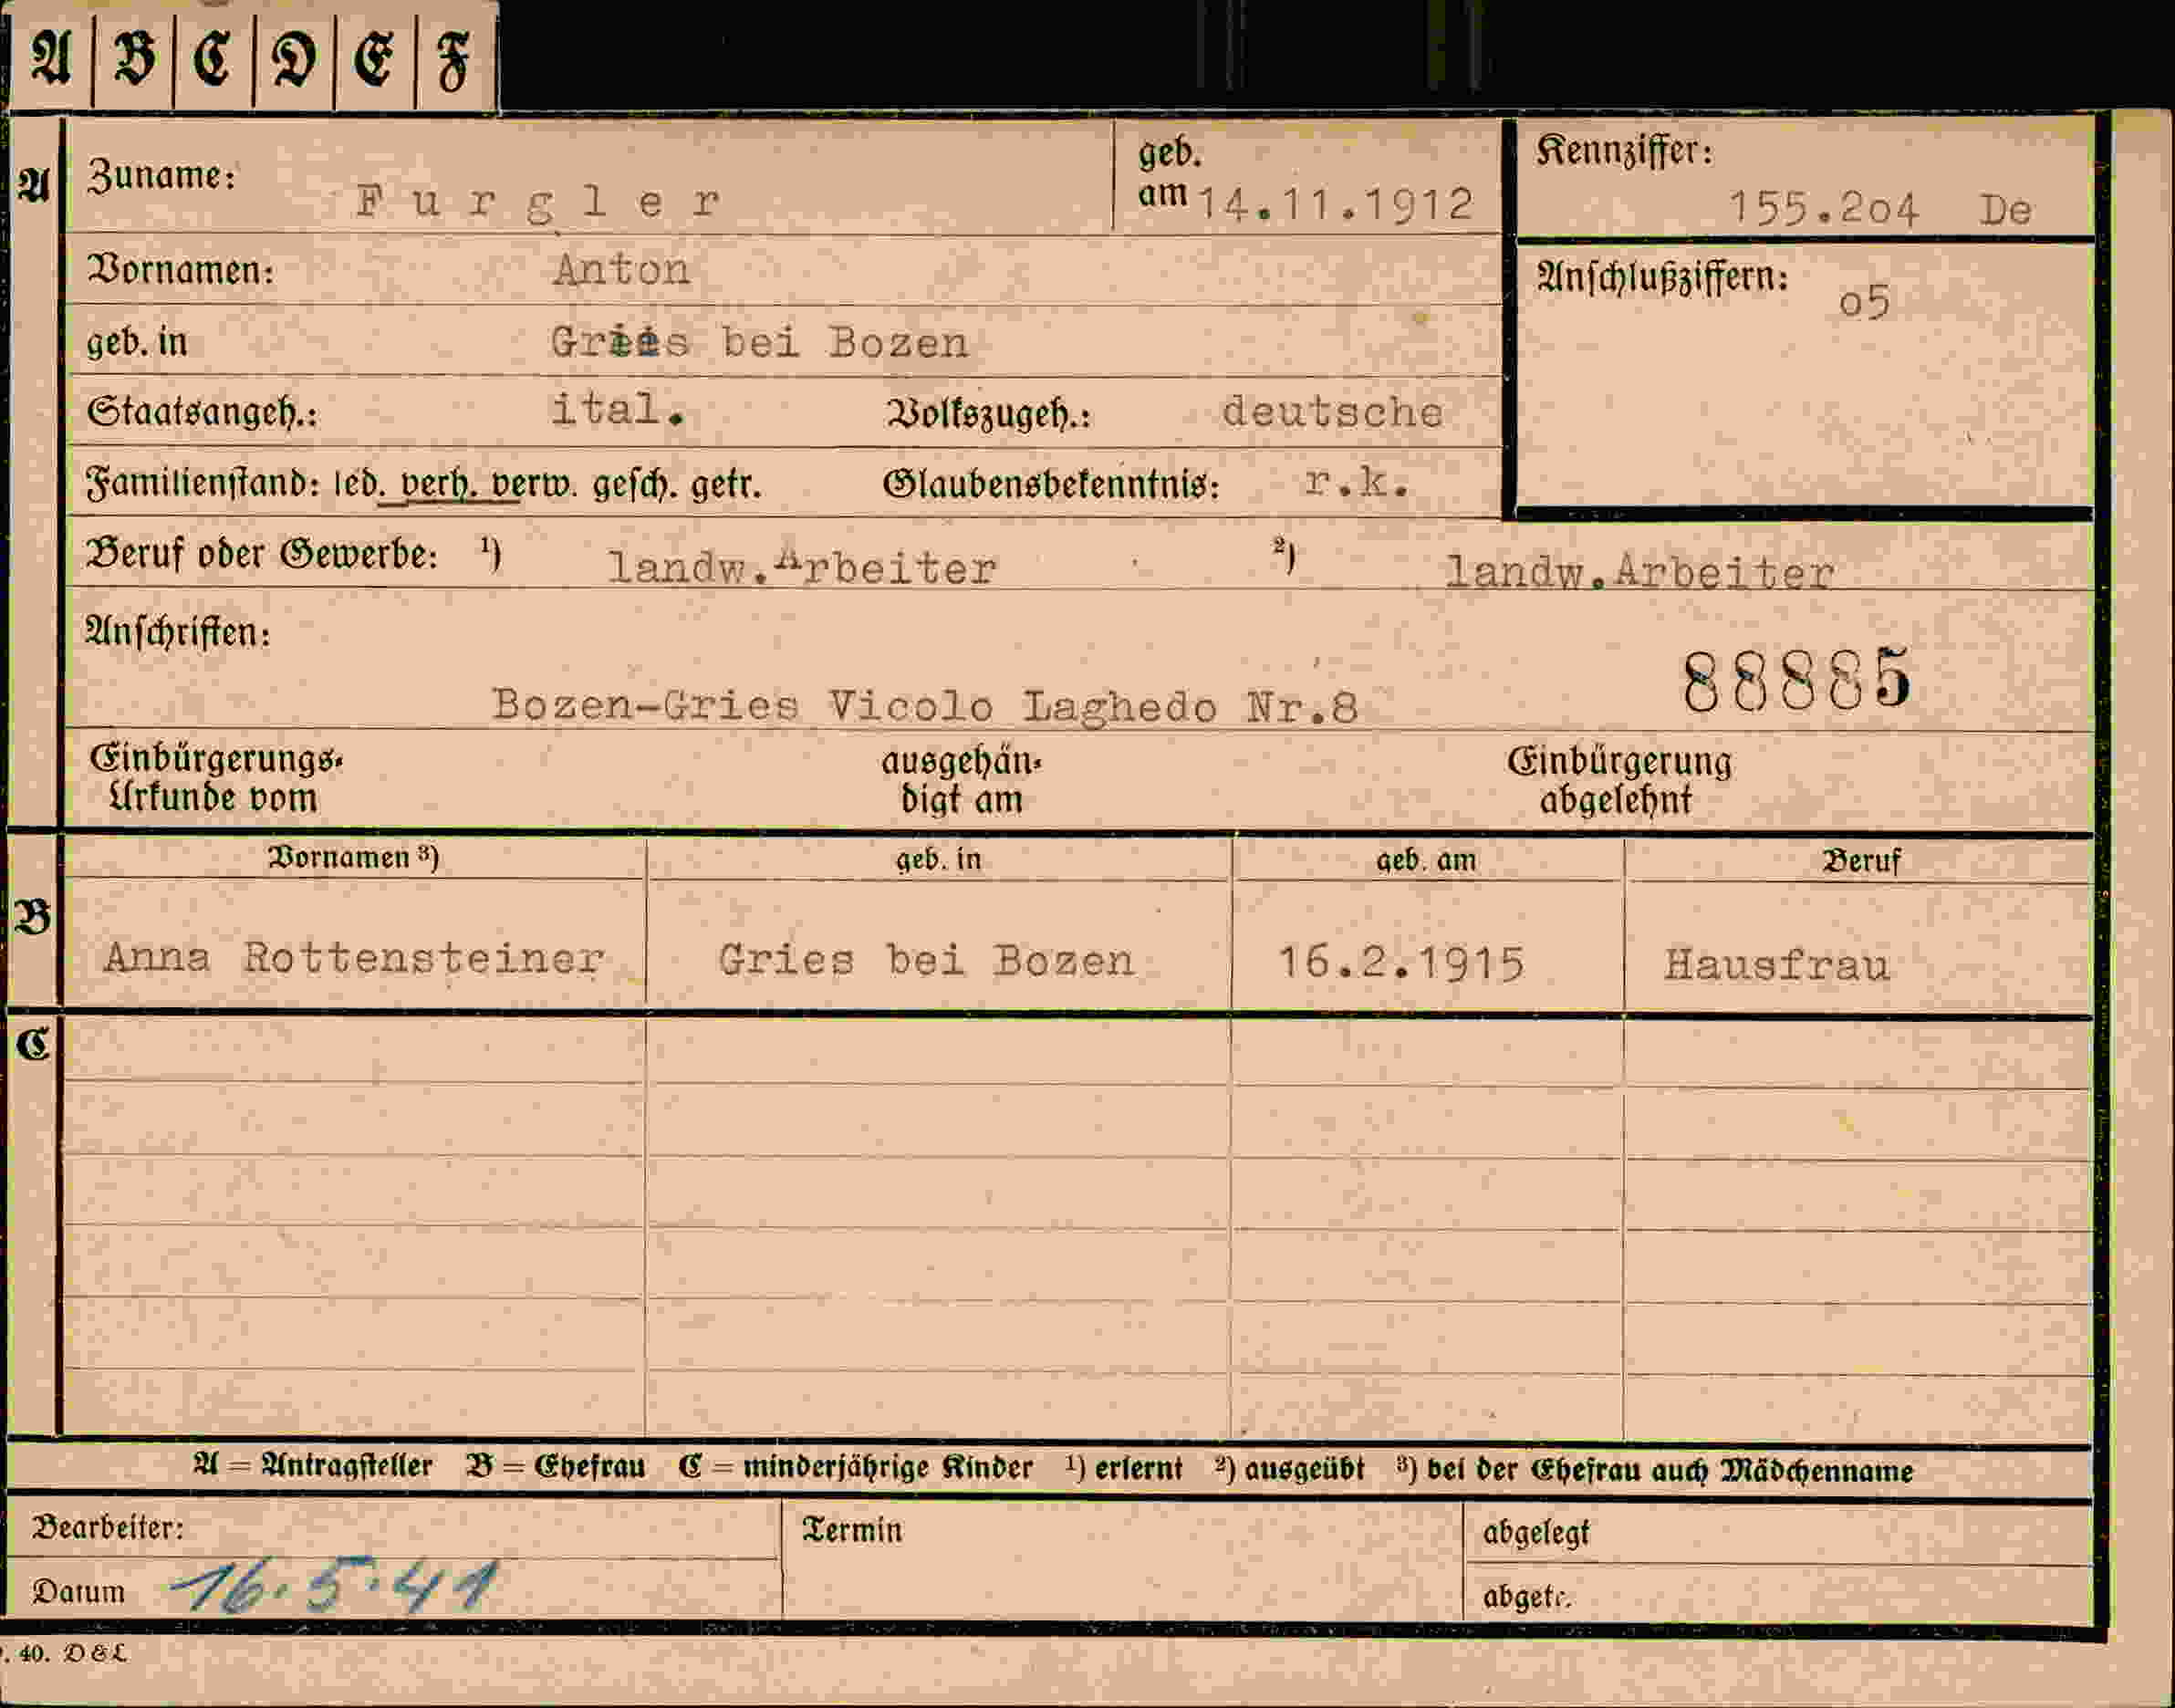 A B C D E F
A Zuname: Furgler geb. am 14.11.1912 Kennziffer: 155.2o4 De
Vornamen: Anton Anschlußziffern: o5
geb. in Gries bei Bozen
Staatsangeh.: ital. Volkszugeh.: deutsche
Familienstand: led. verh. verw. gesch. getr. Glaubensbekenntnis: r.k.
Beruf oder Gewerbe: ¹) landw.Arbeiter ²) landw.Arbeiter
Anschriften:
88885
Bozen-Gries Vicolo Laghedo Nr.8
Einbürgerungs- ausgehän- Einbürgerung
Urkunde vom digt am abgelehnt
B Vornamen ³) geb. in geb. am Beruf
Anna Rottensteiner Gries bei Bozen 16.2.1915 Hausfrau
C
A = Antragsteller B = Ehefrau C = minderjährige Kinder ¹) erlernt ²) ausgeübt ³) bei der Ehefrau auch Mädchenname
Bearbeiter: Termin abgelegt
Datum 16.5.41 abgetr.
. 40. D & L